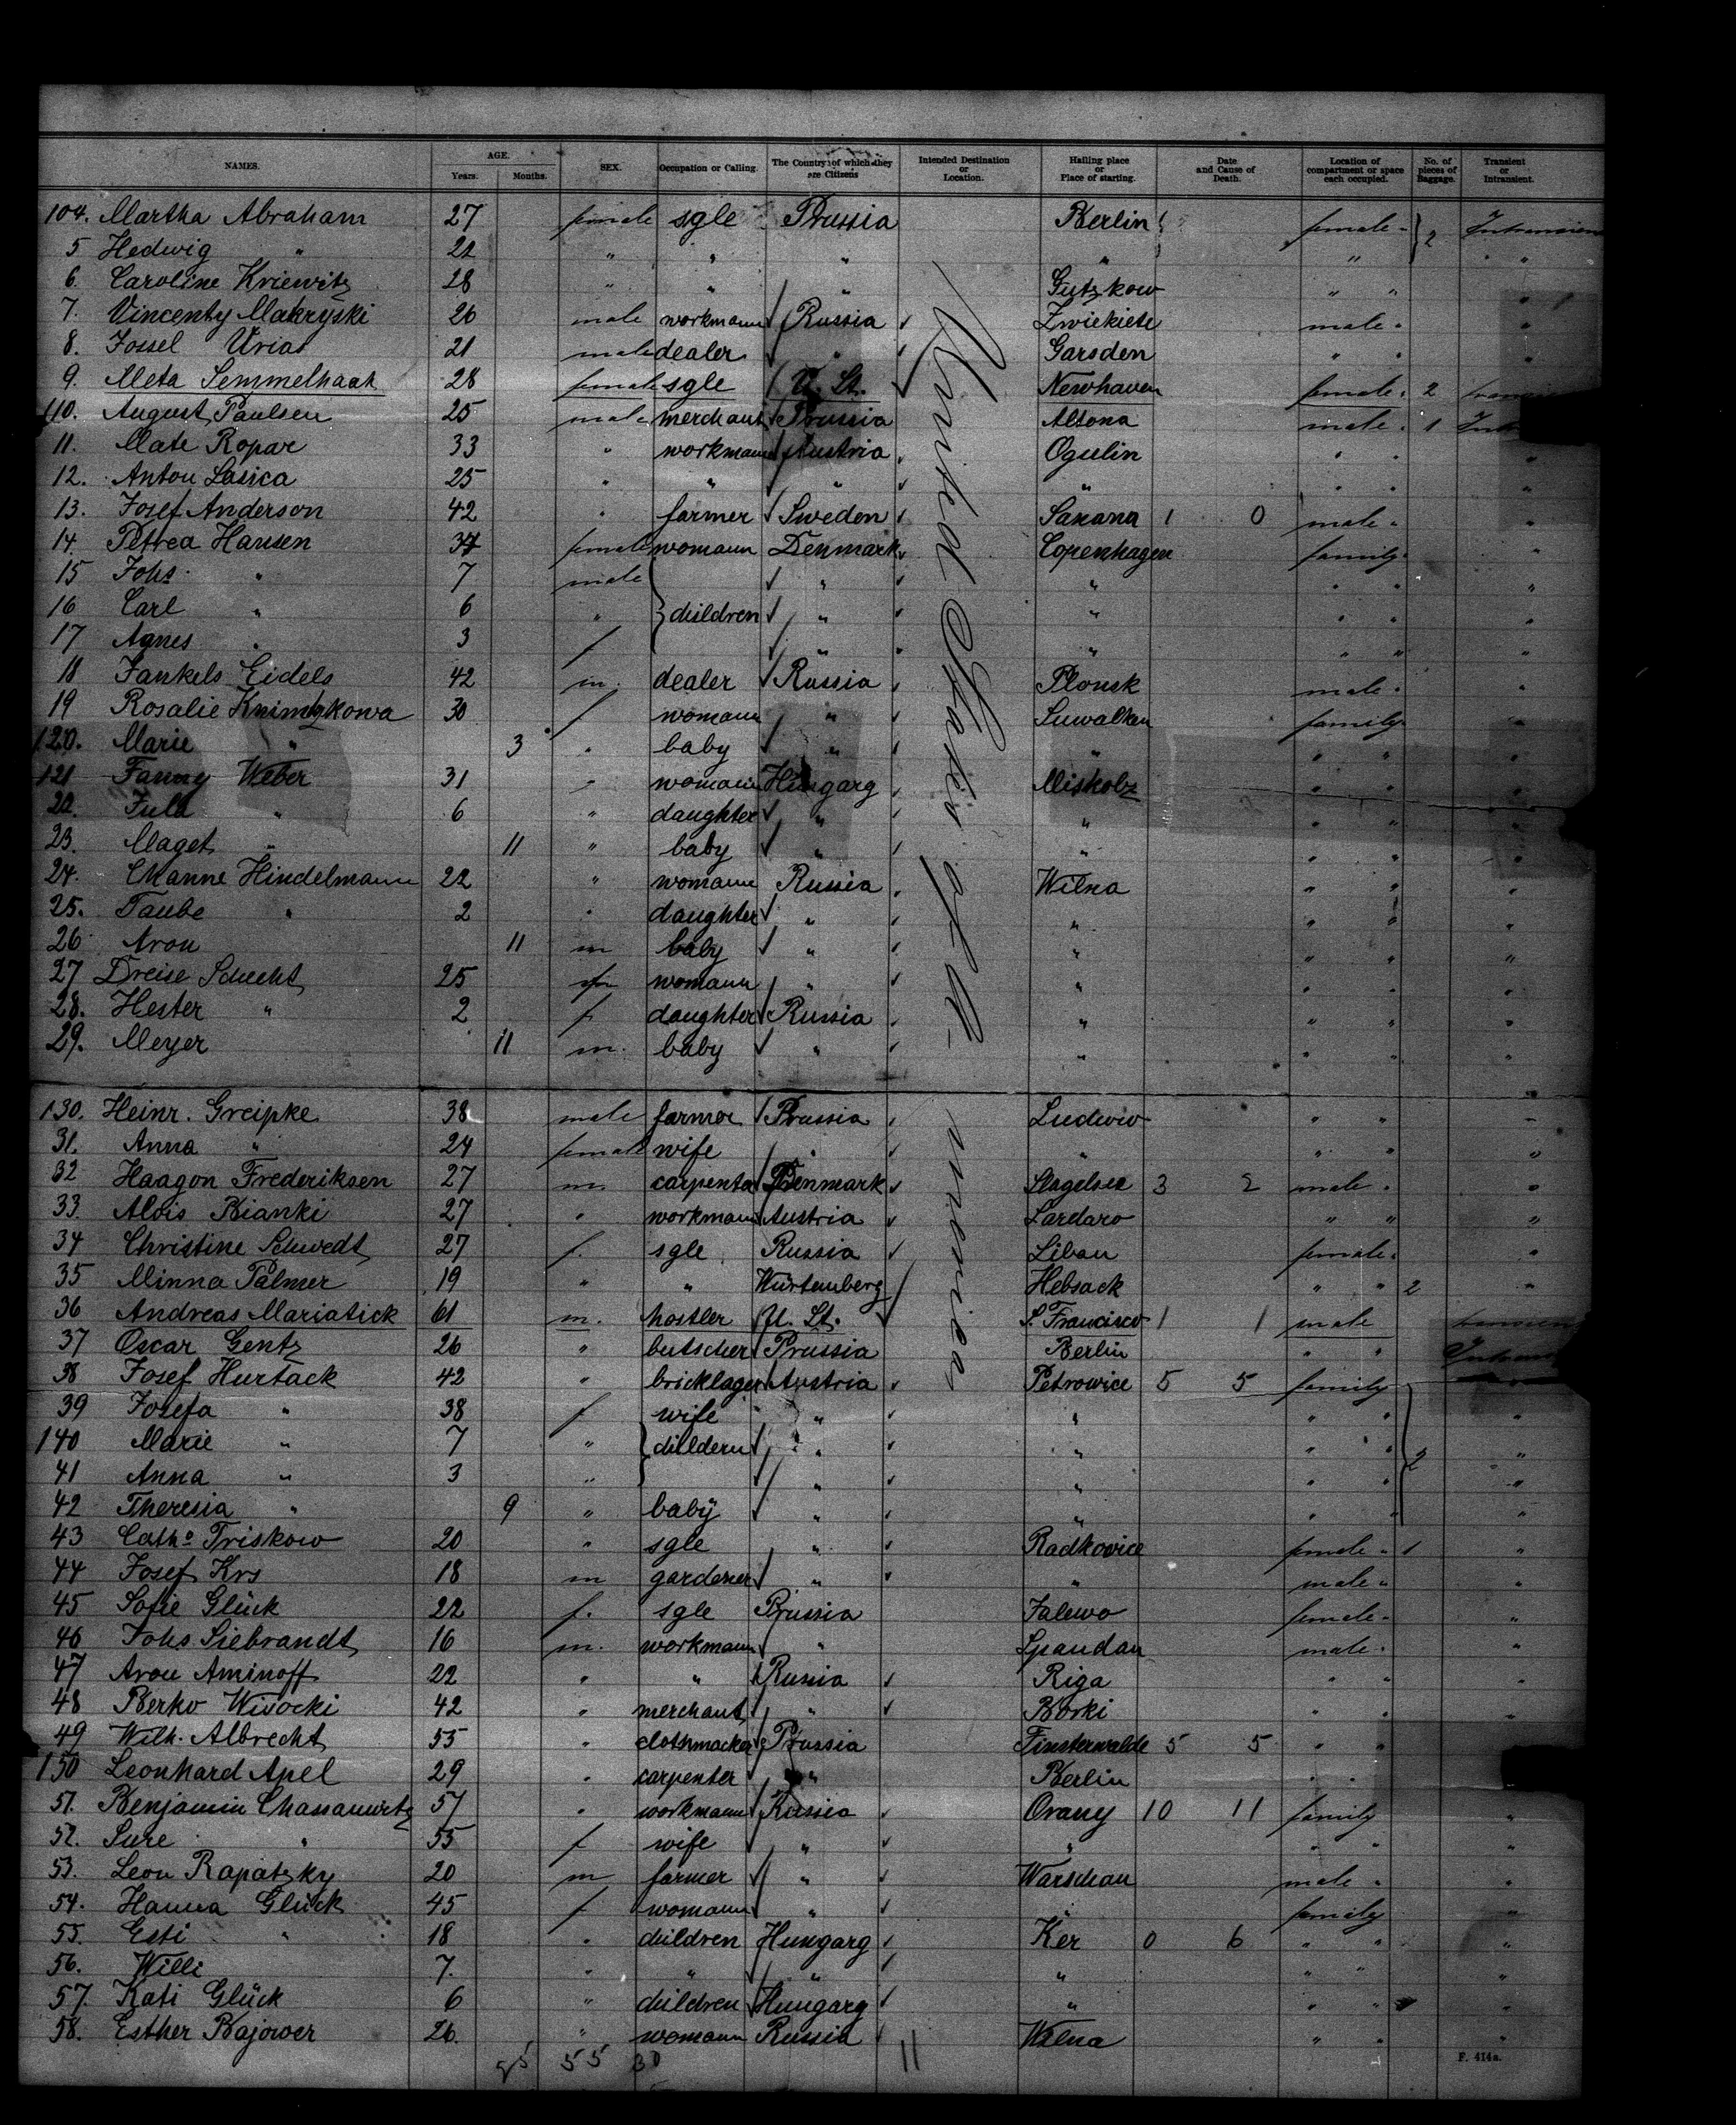 NAMES. AGE. Years. Months. SEX. Occupation or Calling. The Country of which they are Citizens Intended Destination or Location. Hailing place or Place of starting. Date and Cause of Death. Location of compartment or space each occupied. No. of pieces of Baggage. Transient or Intransient.
104. Martha Abraham 27 female sgle Prussia Berlin female " 2
5 Hedwig " 21 " " " " "
6. Caroline Kriewitz 28 " " " Gutzkow " " "
7. Vincenty Makryski 26 male workmann Russia Zwickiete male " "
8. Jossel Urias 21 male dealer " Garsden " " "
9. Meta Semmelhaak 28 female sgle U. St. Newhaven female " 2
110. August Paulsen 25 male merchant Prussia Altona male " 1
11. Mate Ropar 33 " workmann Austria Ogulin " " "
12. Anton Lasica 25 " " " " " " "
13. Josef Anderson 42 " farmer Sweden Saxana 1 0 male " "
14. Petrea Hansen 34 female womann Denmark Copenhagen family " "
15 Johs. " 7 male " " " " "
16 Carl " 6 " children " " " " "
17 Agnes " 3 f " " " " "
18 Jankels Eidels 42 m. dealer Russia Plonsk male " "
19 Rosalie Knimzkowa 30 f womann " Suwalken family "
120. Marie " 3 " baby " " " " "
121 Fanny Weber 31 " womann Hungarg Miskolz " " "
22. Jula " 6 " daughter " " " " "
23. Maget " 11 " baby " " " " "
24. Channe Hindelmann 22 " womann Russia Wilna " " "
25. Taube " 2 " daughter " " " " "
26 Aron 11 m baby " " " " "
27 Dreise Schecht 25 womann " " " " "
28. Hester " 2 f daughter Russia " " " "
29. Meyer 11 m. baby " " " " "
United States of N-America
130. Heinr. Greipke 38 male farmer Prussia Ludwiw " " "
31. Anna " 24 female wife " " " " "
32 Haagon Frederiksen 27 m. carpenter Denmark Slagelsee 3 2 male " "
33. Alois Bianki 27 " workmann Austria Lardaro " " "
34 Christine Schwedt 27 f. sgle Russia Libau female " "
35 Minna Palmer 19 " " Würtemberg Hebsack " " 2 "
36 Andreas Mariatick 61 m. hostler U. St. S. Francisco 1 1 male
37 Oscar Gentz 26 " butscher Prussia Berlin " "
38 Josef Hurtack 42 " bricklager Austria Petrowice 5 5 family
39 Josefa " 38 f wife " " " " "
140 Marie " 7 " childern " " " " 2 "
41 Anna " 3 " " " " " "
42 Theresia " 9 " baby " " " " "
43 Cath. Triskow 20 " sgle " Radkovice female " 1 "
44 Josef Krs 18 m gardener " " male " "
45 Sofie Glück 22 f. sgle Prussia Jalewo female " "
46 Johs Siebrandt 16 m. workmann " Spandau male " "
47 Aron Aminoff 22 " " Russia Riga " " "
48 Berko Wisocki 42 " merchant " Borki " " "
49 Wilh. Albrecht 55 " clothmacker Prussia Finsterwalde 5 5 " "
150 Leonhard Apel 29 " carpenter " Berlin " "
51. Benjamin Chassanwitz 57 " workmann Russia Orany 10 11 family "
52. Sure " 55 f wife " " " " "
53. Leon Rapatzky 20 m farmer " Warschau male " "
54. Hanna Glück 45 f womann " " family "
55. Esti " 18 " children Hungarg Ker 0 6 " " "
56. Willi 7. " " " " " " "
57. Kati Glück 6 " children Hungarg " " " "
58. Esther Bajower 26. " womann Russia Wilna " " "
55 30 11
F. 414a.